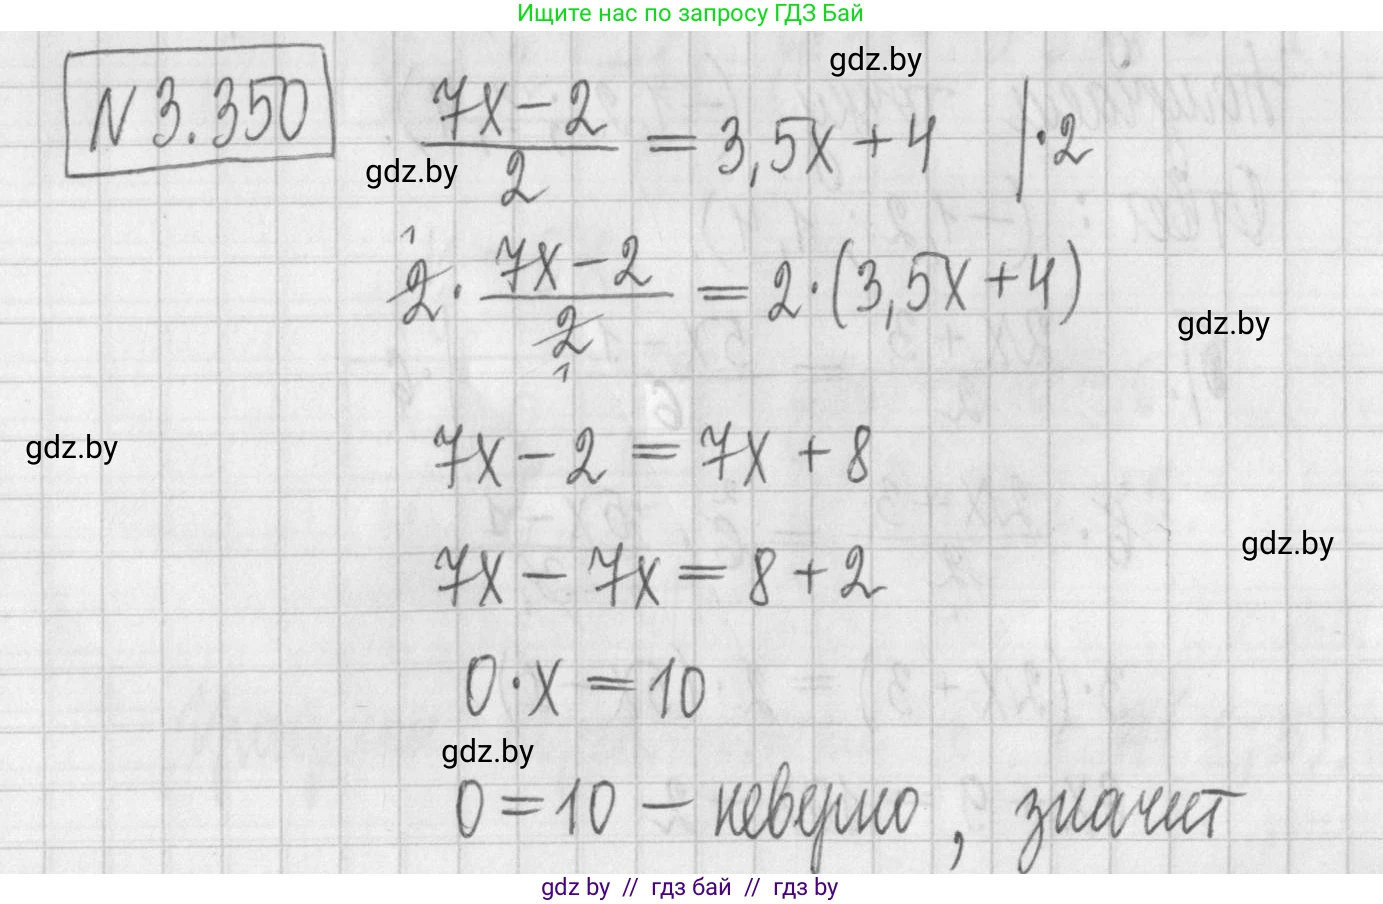 Ищите нас по запросу ГДЗ Бай
N 3.350
gdz.by
(7x − 2)/2 = 3,5x + 4 | · 2
gdz.by
1
2 · (7x − 2)/2 = 2 · (3,5x + 4)
1
gdz.by
gdz.by
7x − 2 = 7x + 8
gdz.by
7x − 7x = 8 + 2
0 · x = 10
gdz.by
0 = 10 — неверно, значит
gdz by // гдз бай // гдз by